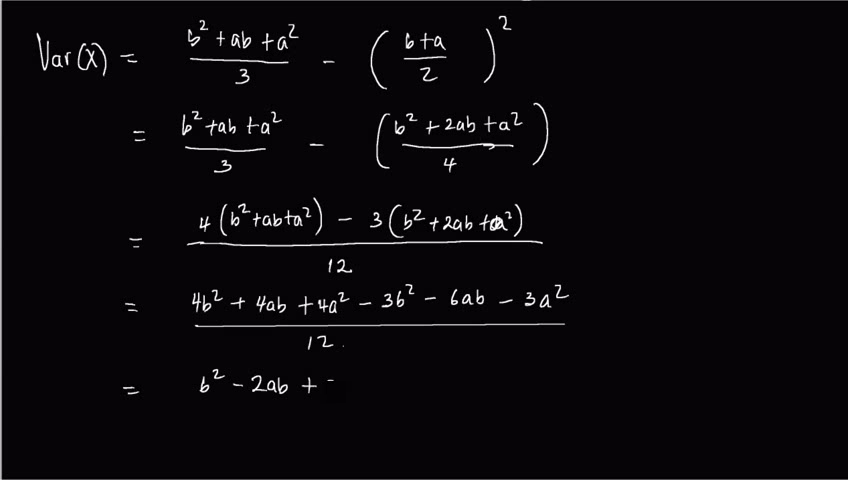 Var(X) = \frac{b^2 + ab + a^2}{3} - \left( \frac{b+a}{2} \right)^2
= \frac{b^2 + ab + a^2}{3} - \left( \frac{b^2 + 2ab + a^2}{4} \right)
= \frac{4(b^2 + ab + a^2) - 3(b^2 + 2ab + a^2)}{12}
= \frac{4b^2 + 4ab + 4a^2 - 3b^2 - 6ab - 3a^2}{12}
= b^2 - 2ab +